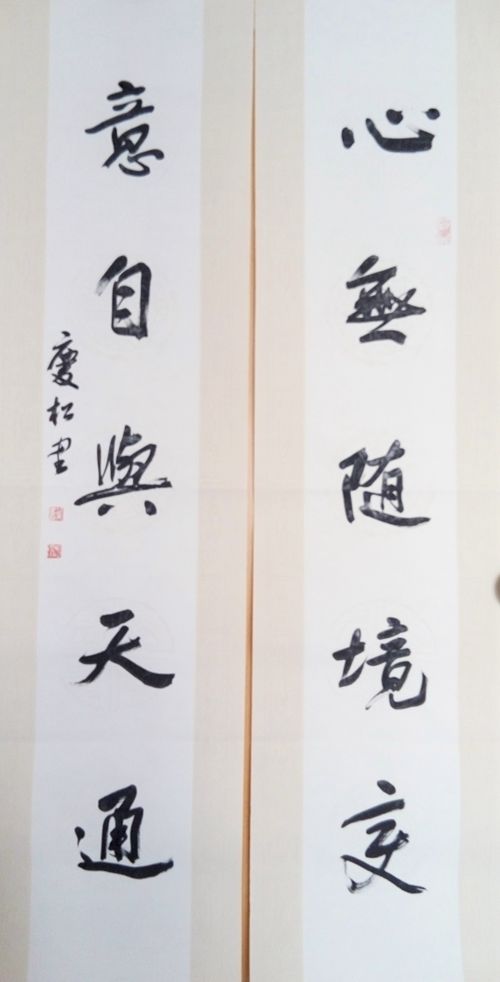 心無随境变
意自與天通
慶松書